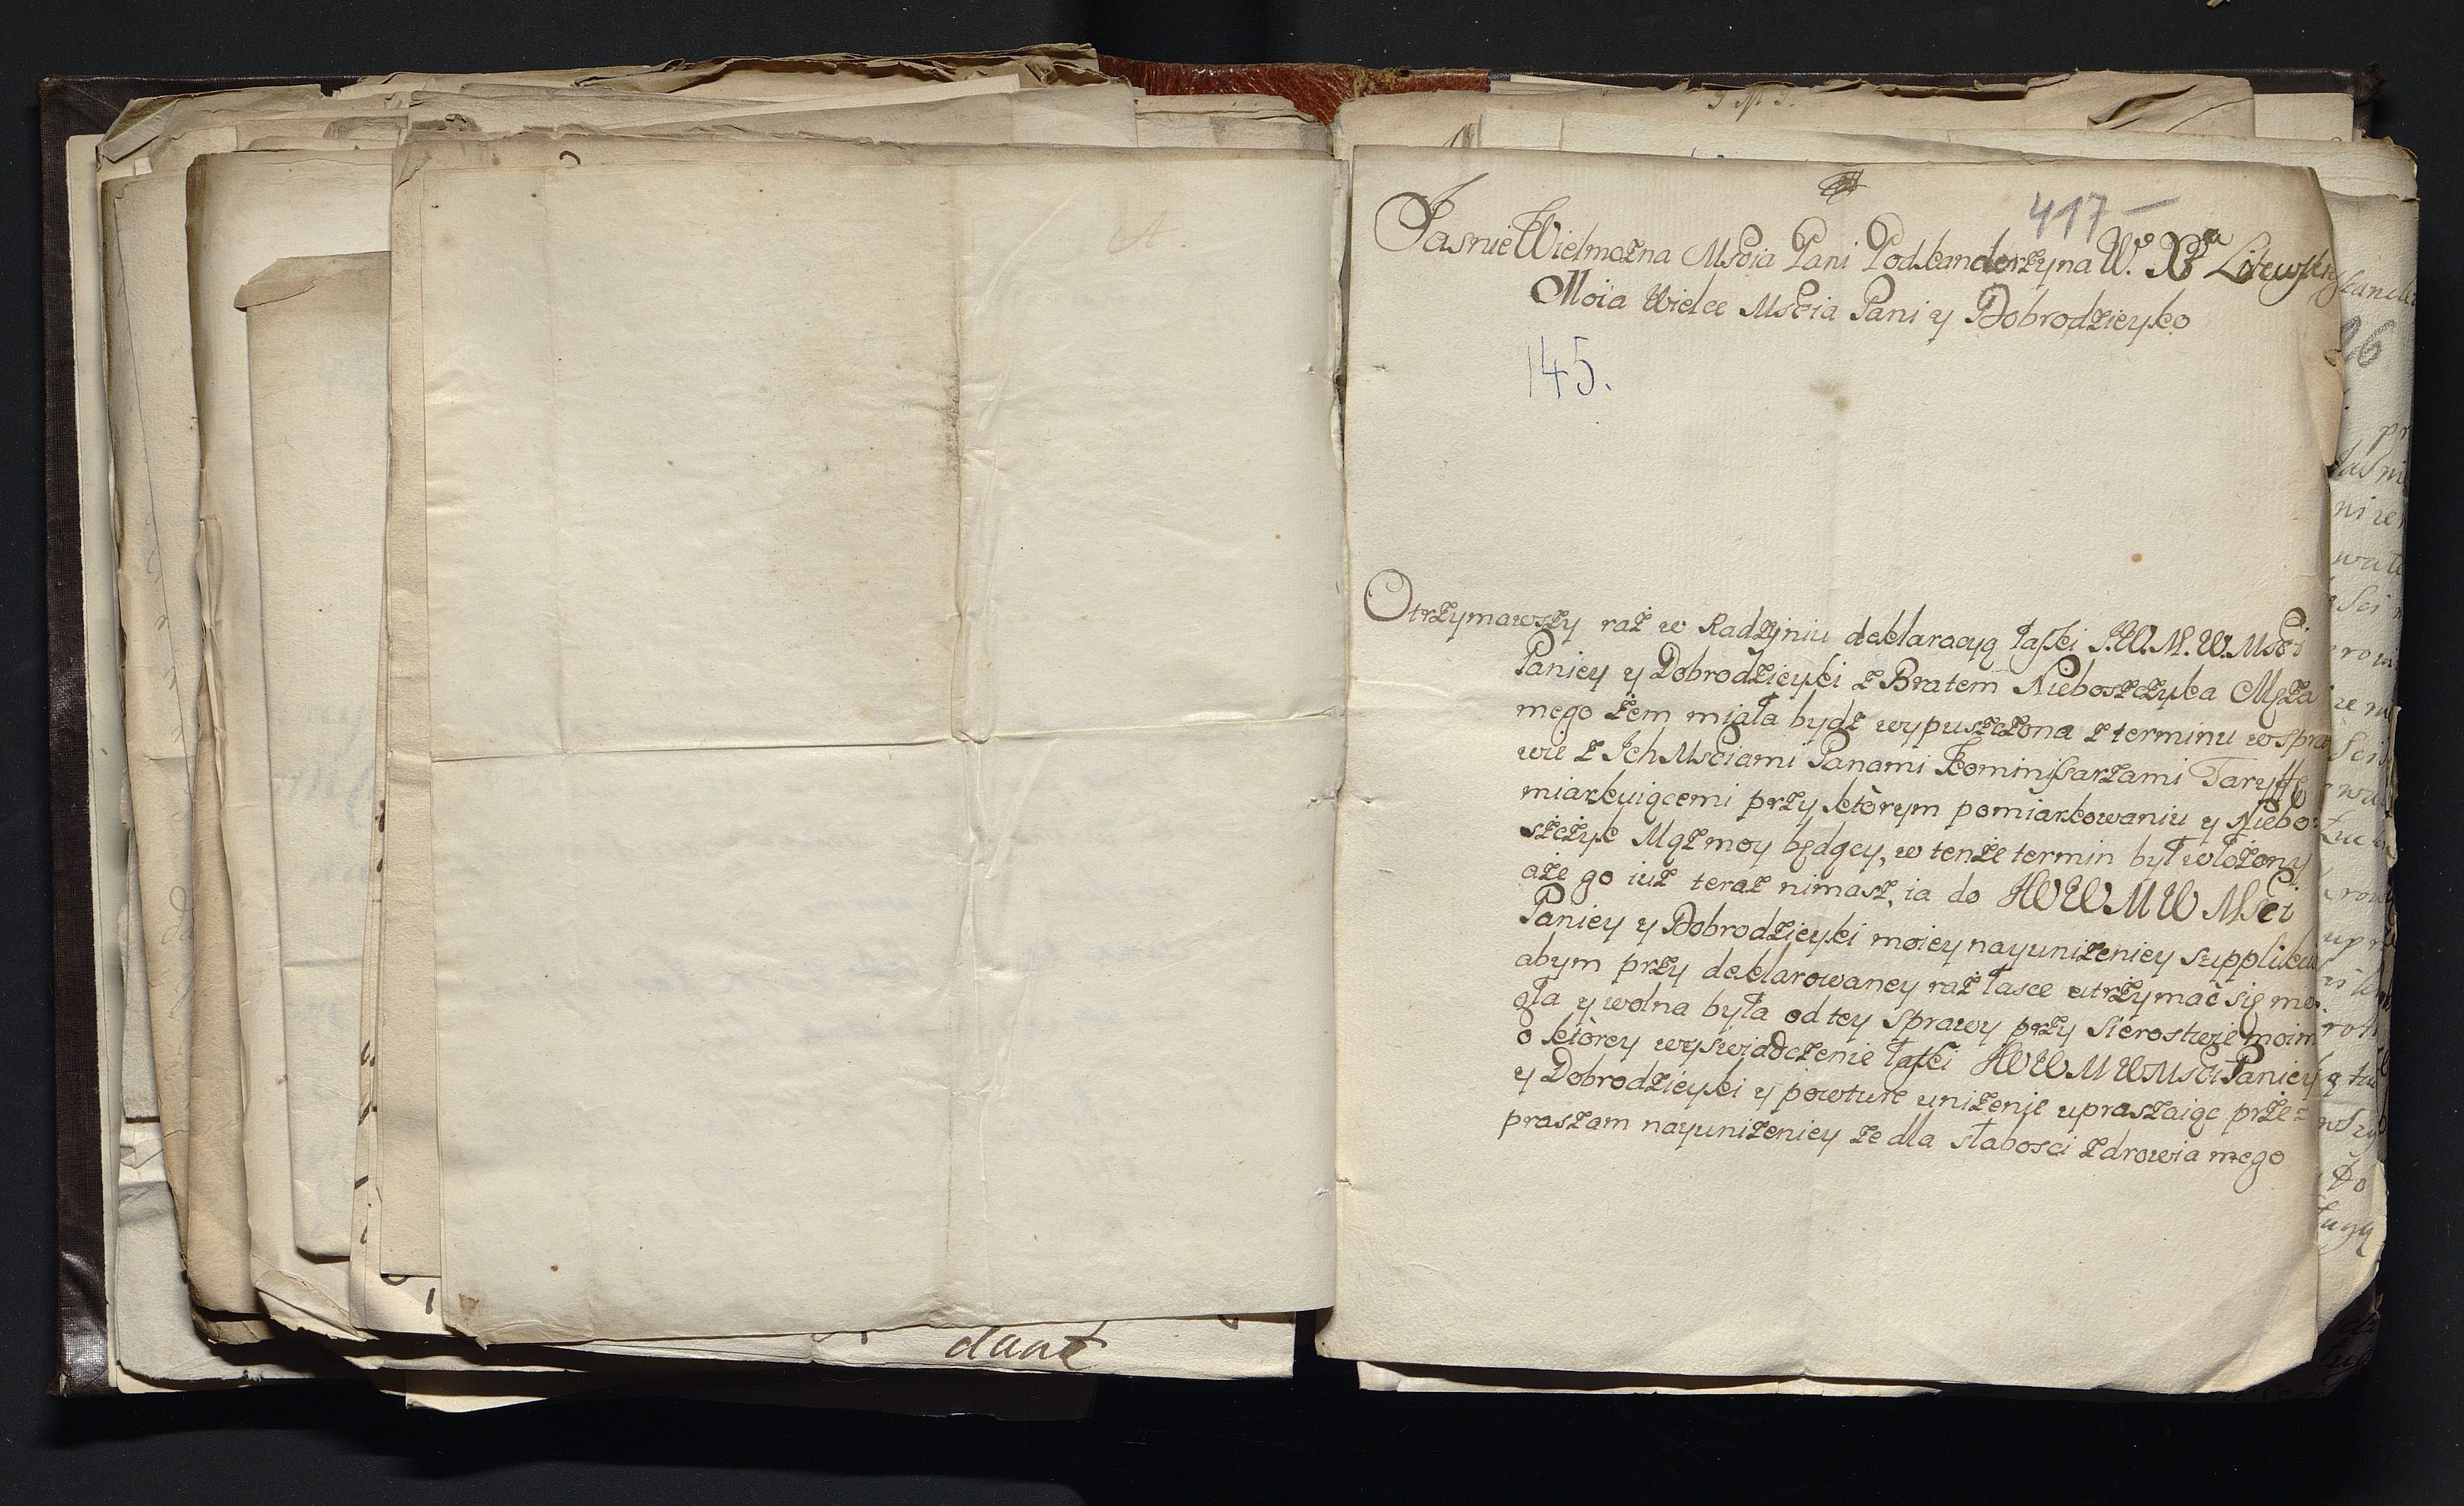 417
Jasnie Wielmożna Mscia Pani Podkanclerzyna W. X. Litewsky
Moia Wielce Mscia Pani y Dobrodzieyko
145.
Otrzymawszy raz w Radzyniu deklaracyą łaski J.W.M.W.Msci
Paniey y Dobrodzieyki z Bratem Nieboszczyka Męża
mego żem miała bydz wypuszczona z terminu w spra
wie z Ich Msciami Panami Kommissarzami Taryffę
miarkuiącemi przy którym pomiarkowaniu y Niebo:
szczyk Mąż moy będący, w tenże termin był włożony
aże go iuż teraz nimasz, ia do JWWMWMsci
Paniey y Dobrodzieyki moiey nayuniżeniey supplikuię
abym przy deklarowaney raz łasce utrzymać się mo:
gła y wolna była od tey sprawy przy sierostwie moim
o którey wyswiadczenie łaski JWWMWMsci Paniey
y Dobrodzieyki y powture uniżenie upraszaiąc prze:
praszam nayuniżeniey że dla słabosci zdrowia mego
duae